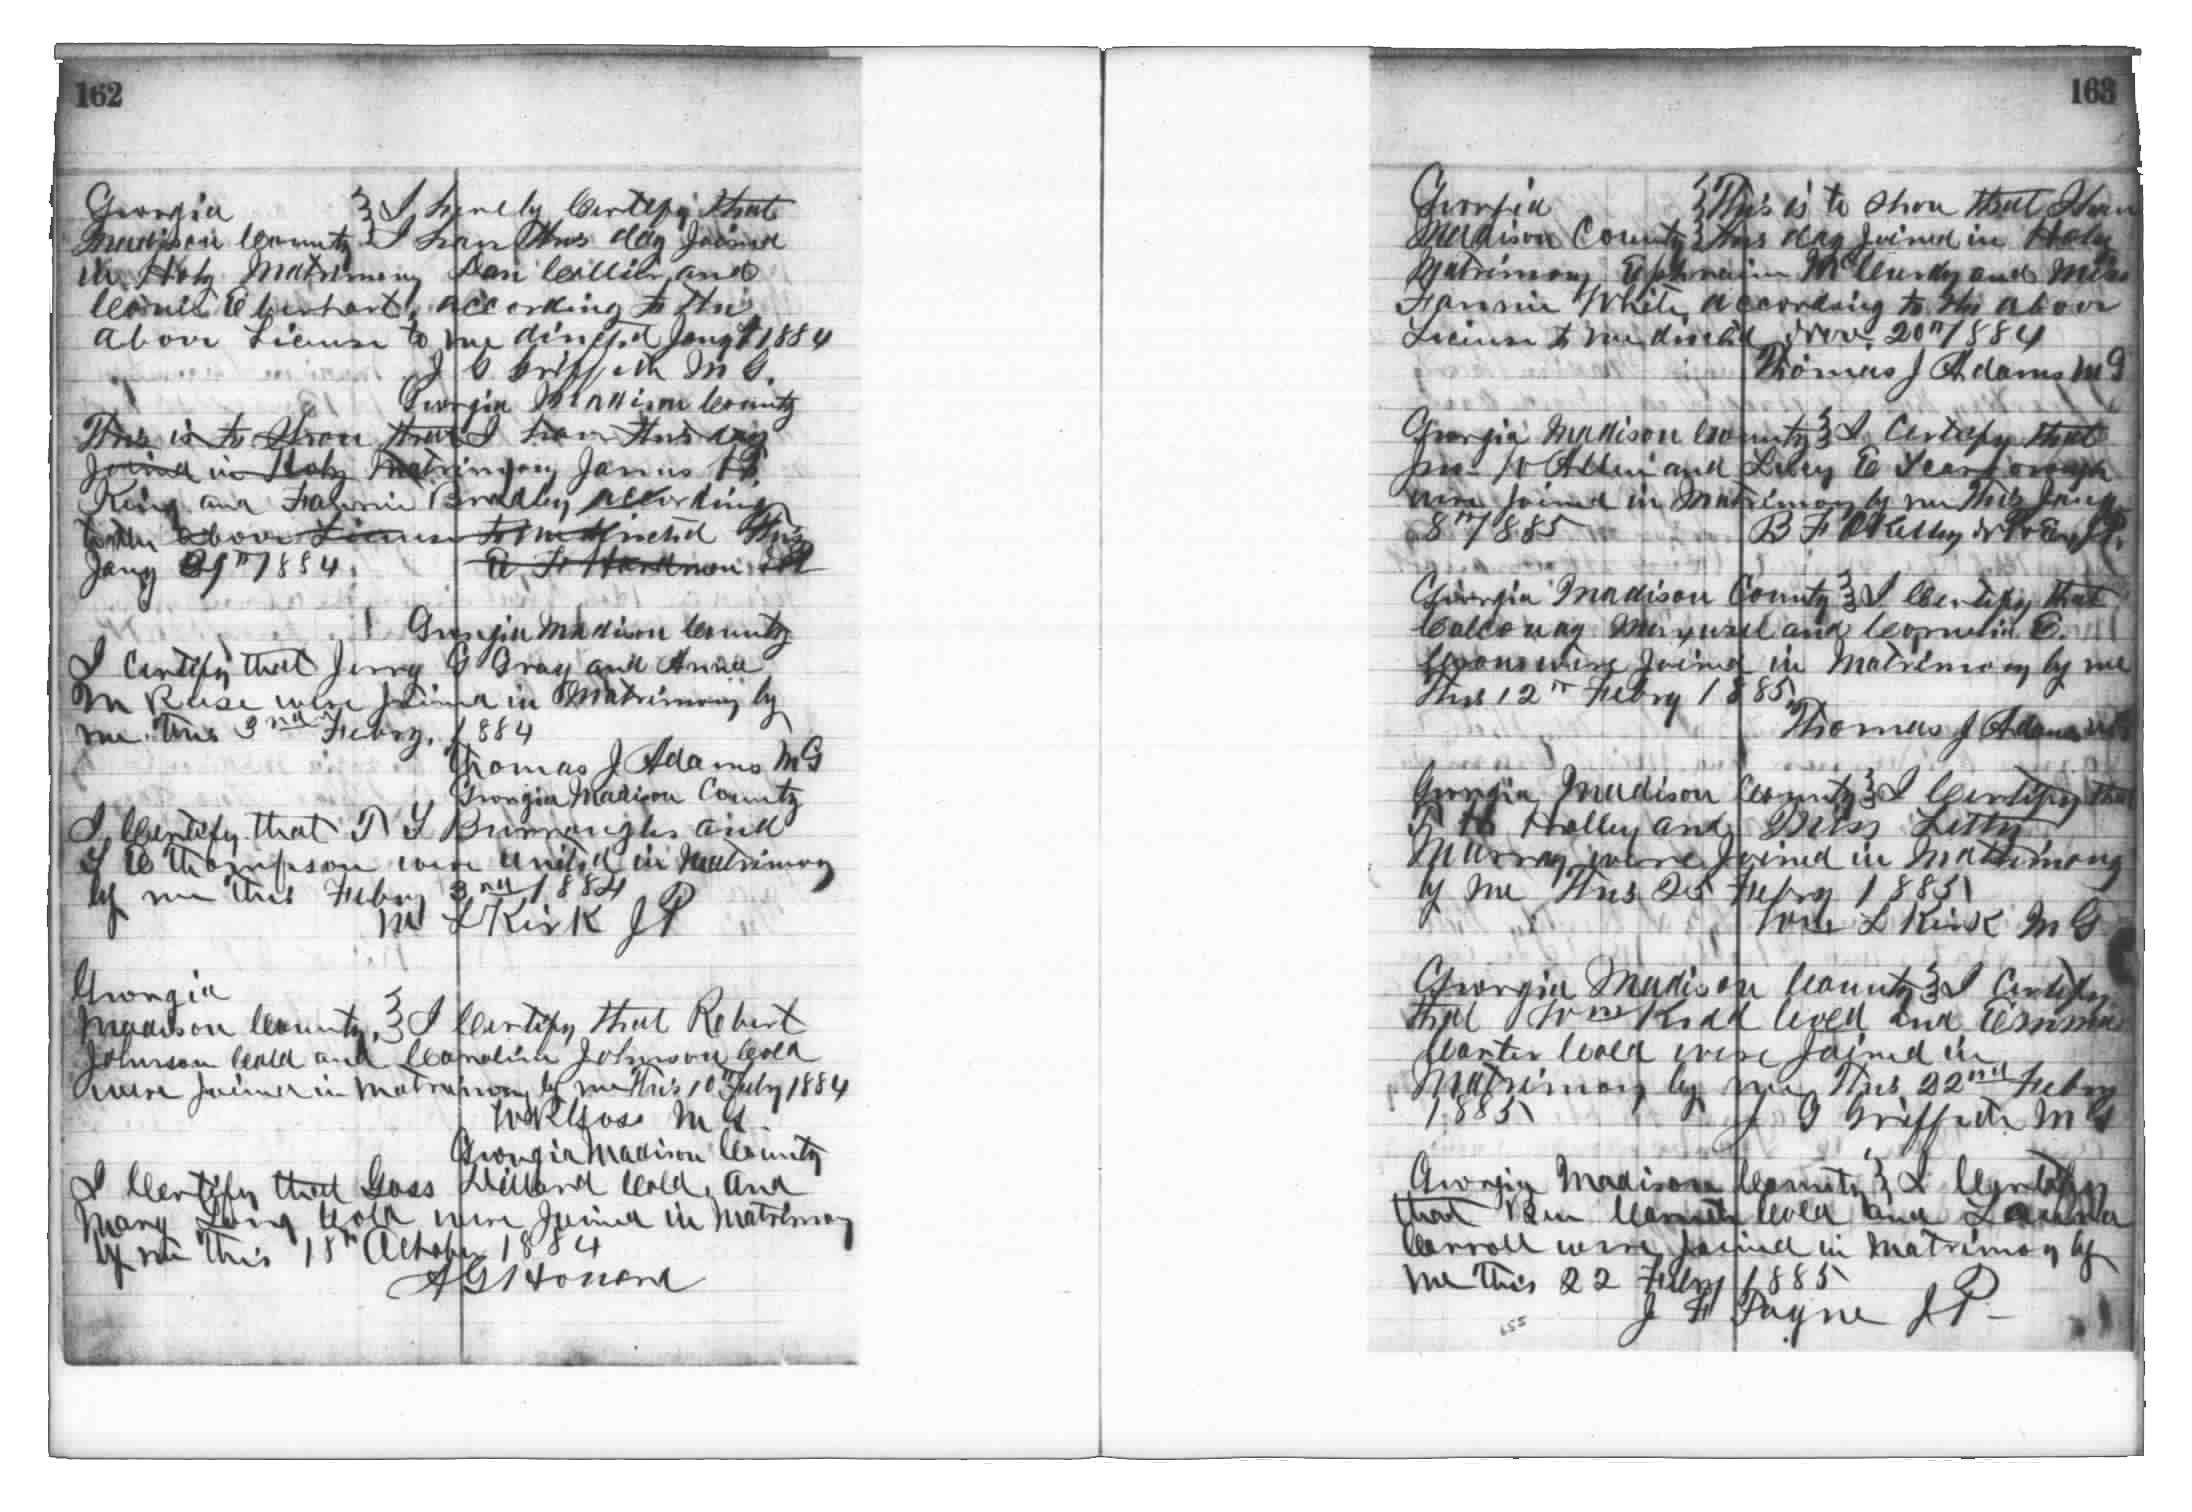 162
Georgia } I hereby Certify that
Madison County } I have this day Joined
in Holy Matrimony Dan Collier and
Eberhart, according to the
above License to me directed Jany 1884
J G Griffeth M G.
Georgia Madison County
This is to Show that I have this day
Joined in Holy Matrimony James H
King and Fannie Bradley according
to the above License to me directed This
Jany 29th 1884.
A. F. Hardman
Georgia Madison County
I Certify that Jerry G Gray and Anna
M Reese were Joined in Matrimony by
me this 3rd Febry, 1884
Thomas J Adams M G
Georgia Madison County
I Certify that T S Burroughs and
S E Thompson were united in Matrimony
by me this Febry 3rd 1884
M L Kirk J P
Georgia
Madison County, } I Certify that Robert
Johnson Cold and Caroline Johnson Cold
were Joined in Matrimony by me this 10th July 1884
W R Goss M G.
Georgia Madison County
I Certify that Goss Dillard Cold, and
Mary Long Cold were Joined in Matrimony
by me this 18th October 1884
A G Honard
163
Georgia } This is to Show that I have
Madison County } this day Joined in Holy
Matrimony Ephraim McCurdy and Miss
Fannie White, according to the above
License to me directed Nov. 20th 1884
Thomas J Adams M G
Georgia Madison County } I Certify that
Jno W Allen and E Scarborough
were Joined in Matrimony by me This Jany
8th 1885 B F OKelley J.P.
Georgia Madison County } I Certify that
and Cornelia E.
were Joined in Matrimony by me
this 12th Febry 1885
Thomas J Adams M G
Georgia Madison County } I Certify that
T H Holley and Miss Letty
Murray were Joined in Matrimony
by me This 25 Febry 1885
Wm L Kirk M G
Georgia Madison County } I Certify
that Wm Kidd Cold and Emma
Carter Cold were Joined in
Matrimony by me This 22nd Febry
1885 J G Griffeth M G
Georgia Madison County } I Certify
that Ben Cold and Laura
Carroll were Joined in Matrimony by
me this 22 Febry 1885
J F Payne J P